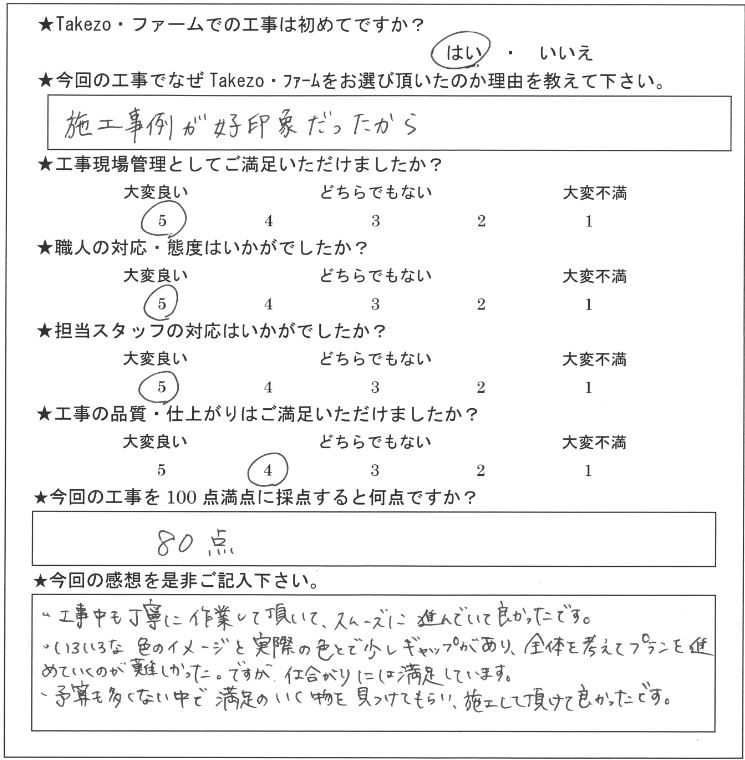 ★Takezo・ファームでの工事は初めてですか？
はい ・ いいえ
★今回の工事でなぜTakezo・ﾌｧｰﾑをお選び頂いたのか理由を教えて下さい。
施工事例が好印象だったから
★工事現場管理としてご満足いただけましたか？
大変良い どちらでもない 大変不満
5 4 3 2 1
★職人の対応・態度はいかがでしたか？
大変良い どちらでもない 大変不満
5 4 3 2 1
★担当スタッフの対応はいかがでしたか？
大変良い どちらでもない 大変不満
5 4 3 2 1
★工事の品質・仕上がりはご満足いただけましたか？
大変良い どちらでもない 大変不満
5 4 3 2 1
★今回の工事を100点満点に採点すると何点ですか？
80点
★今回の感想を是非ご記入下さい。
・工事中も丁寧に作業して頂いて、スムーズに進んでいて良かったです。
・いろいろな色のイメージと実際の色とで少しギャップがあり、全体を考えてプランを進
めていくのが難しかった。ですが、仕合がりには満足しています。
・予算も多くない中で満足のいく物を見つけてもらい、施工して頂けて良かったです。